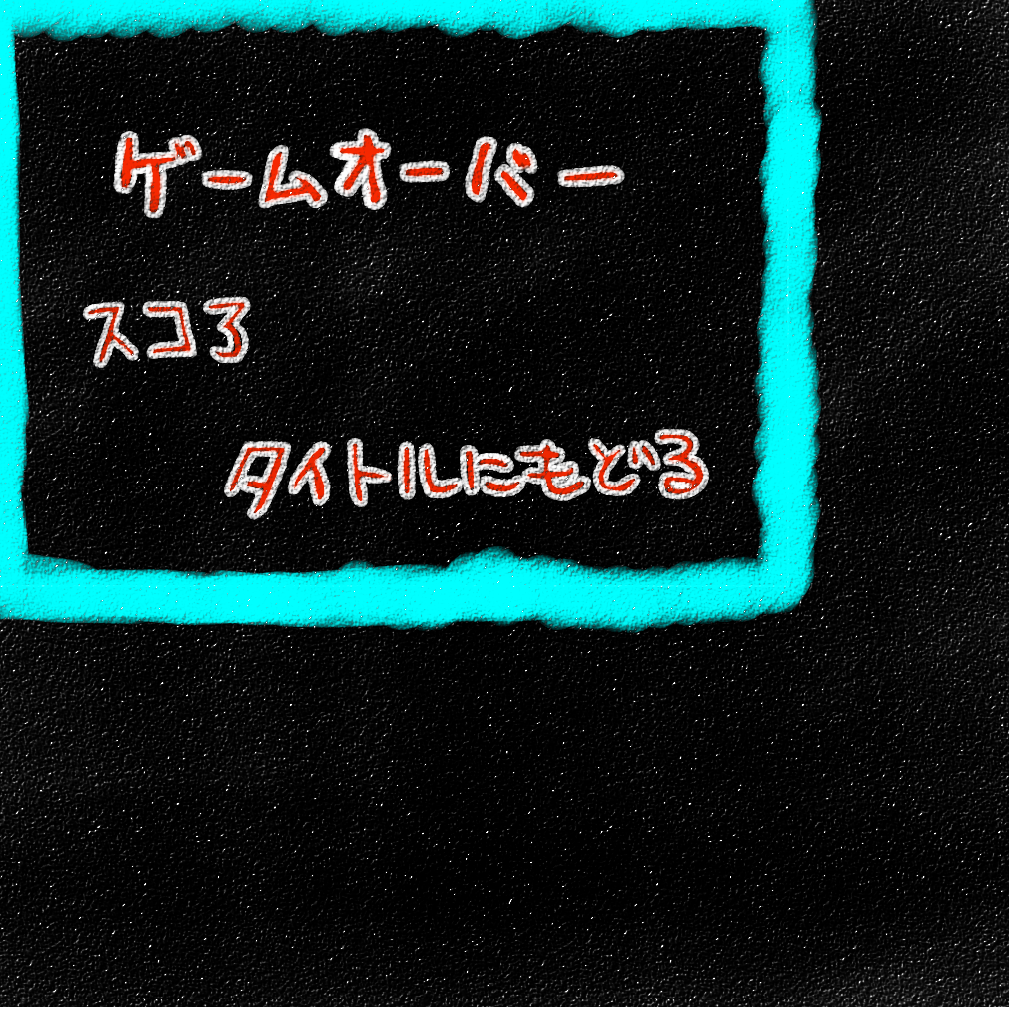 ゲームオーバー
スコろ
タイトルにもどる